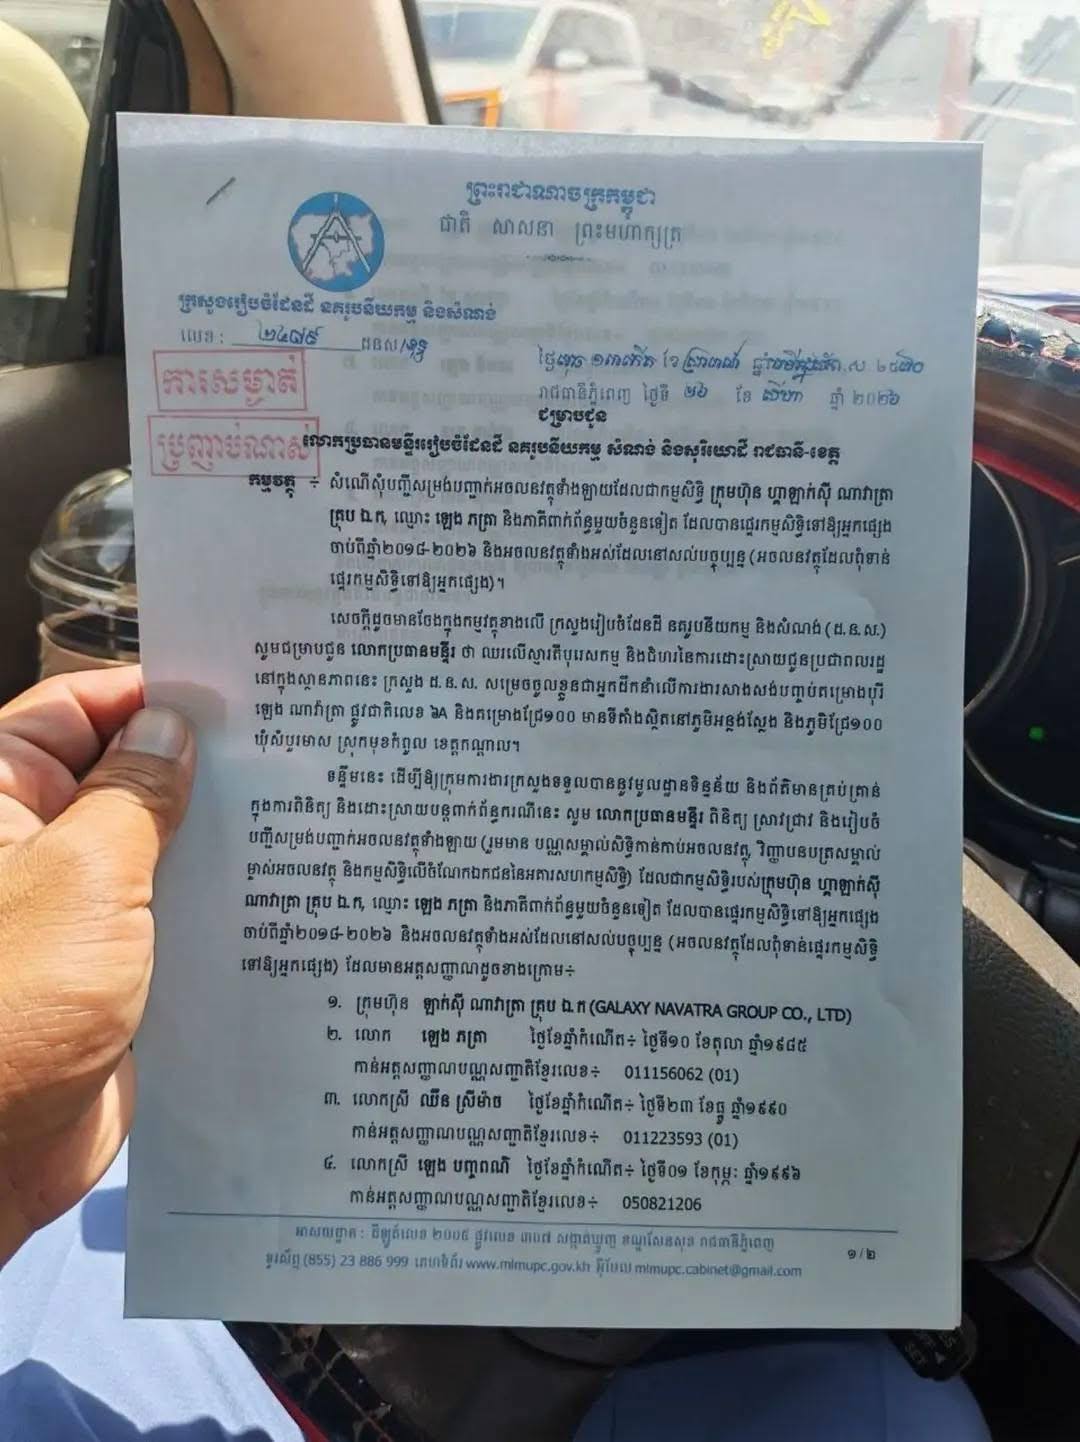 ព្រះរាជាណាចក្រកម្ពុជា
ជាតិ សាសនា ព្រះមហាក្សត្រ
ក្រសួងរៀបចំដែនដី នគរូបនីយកម្ម និងសំណង់
លេខ : ២៤៧៩ ដនស/
ការសម្ងាត់
ថ្ងៃពុធ ១៣កើត ខែស្រាពណ៍ ឆ្នាំ ព.ស. ២៥៧០
រាជធានីភ្នំពេញ ថ្ងៃទី ២៦ ខែ សីហា ឆ្នាំ ២០២៦
ជម្រាបជូន
ប្រញាប់ណាស់
លោកប្រធានមន្ទីររៀបចំដែនដី នគរូបនីយកម្ម សំណង់ និងសុរិយោដី រាជធានី-ខេត្ត
កម្មវត្ថុ ៖ សំណើសុំបញ្ជីសម្រង់បញ្ជាក់អចលនវត្ថុទាំងឡាយដែលជាកម្មសិទ្ធិ ក្រុមហ៊ុន ហ្គាឡាក់ស៊ី ណាវ៉ាត្រា
គ្រុប ឯ.ក, ឈ្មោះ ឡេង ភត្រា និងភាគីពាក់ព័ន្ធមួយចំនួនទៀត ដែលបានផ្ទេរកម្មសិទ្ធិទៅឱ្យអ្នកផ្សេង
ចាប់ពីឆ្នាំ២០១៨-២០២៦ និងអចលនវត្ថុទាំងអស់ដែលនៅសល់បច្ចុប្បន្ន (អចលនវត្ថុដែលពុំទាន់
ផ្ទេរកម្មសិទ្ធិទៅឱ្យអ្នកផ្សេង)។
សេចក្តីដូចមានចែងក្នុងកម្មវត្ថុខាងលើ ក្រសួងរៀបចំដែនដី នគរូបនីយកម្ម និងសំណង់ (ដ.ន.ស.)
សូមជម្រាបជូន លោកប្រធានមន្ទីរ ថា ឈរលើស្មារតីបុរេសកម្ម និងជំហរនៃការដោះស្រាយជូនប្រជាពលរដ្ឋ
នៅក្នុងស្ថានភាពនេះ ក្រសួង ដ.ន.ស. សម្រេចចូលខ្លួនជាអ្នកដឹកនាំលើការងារសាងសង់បញ្ចប់គម្រោងបុរី
ឡេង ណាវ៉ាត្រា ផ្លូវជាតិលេខ ៦A និងគម្រោងជ្រៃ១០០ មានទីតាំងស្ថិតនៅភូមិអន្លង់ស្លែង និងភូមិជ្រៃ១០០
ឃុំសំបួរមាស ស្រុកមុខកំពូល ខេត្តកណ្តាល។
ទន្ទឹមនេះ ដើម្បីឱ្យក្រុមការងារក្រសួងទទួលបាននូវមូលដ្ឋានទិន្នន័យ និងព័ត៌មានគ្រប់គ្រាន់
ក្នុងការពិនិត្យ និងដោះស្រាយបន្តពាក់ព័ន្ធករណីនេះ សូម លោកប្រធានមន្ទីរ ពិនិត្យ ស្រាវជ្រាវ និងរៀបចំ
បញ្ជីសម្រង់បញ្ជាក់អចលនវត្ថុទាំងឡាយ (រួមមាន បណ្ណសម្គាល់សិទ្ធិកាន់កាប់អចលនវត្ថុ, វិញ្ញាបនបត្រសម្គាល់
ម្ចាស់អចលនវត្ថុ និងកម្មសិទ្ធិលើចំណែកឯកជននៃអគារសហកម្មសិទ្ធិ) ដែលជាកម្មសិទ្ធិរបស់ក្រុមហ៊ុន ហ្គាឡាក់ស៊ី
ណាវ៉ាត្រា គ្រុប ឯ.ក, ឈ្មោះ ឡេង ភត្រា និងភាគីពាក់ព័ន្ធមួយចំនួនទៀត ដែលបានផ្ទេរកម្មសិទ្ធិទៅឱ្យអ្នកផ្សេង
ចាប់ពីឆ្នាំ២០១៨-២០២៦ និងអចលនវត្ថុទាំងអស់ដែលនៅសល់បច្ចុប្បន្ន (អចលនវត្ថុដែលពុំទាន់ផ្ទេរកម្មសិទ្ធិ
ទៅឱ្យអ្នកផ្សេង) ដែលមានអត្តសញ្ញាណដូចខាងក្រោម៖
១. ក្រុមហ៊ុន ឡាក់ស៊ី ណាវ៉ាត្រា គ្រុប ឯ.ក (GALAXY NAVATRA GROUP CO., LTD)
២. លោក ឡេង ភត្រា ថ្ងៃខែឆ្នាំកំណើត៖ ថ្ងៃទី១០ ខែតុលា ឆ្នាំ១៩៨៥
កាន់អត្តសញ្ញាណបណ្ណសញ្ជាតិខ្មែរលេខ៖ 011156062 (01)
៣. លោកស្រី ឈឺន ស្រីម៉ាច ថ្ងៃខែឆ្នាំកំណើត៖ ថ្ងៃទី២៣ ខែធ្នូ ឆ្នាំ១៩៩០
កាន់អត្តសញ្ញាណបណ្ណសញ្ជាតិខ្មែរលេខ៖ 011223593 (01)
៤. លោកស្រី ឡេង បញ្ចពណ៌ ថ្ងៃខែឆ្នាំកំណើត៖ ថ្ងៃទី០១ ខែកុម្ភៈ ឆ្នាំ១៩៩៦
កាន់អត្តសញ្ញាណបណ្ណសញ្ជាតិខ្មែរលេខ៖ 050821206
អាសយដ្ឋាន : ដីឡូត៍លេខ ២០០៥ ផ្លូវលេខ ៣០៧ សង្កាត់ឃ្មួញ ខណ្ឌសែនសុខ រាជធានីភ្នំពេញ
ទូរស័ព្ទ (855) 23 886 999 គេហទំព័រ www.mlmupc.gov.kh អ៊ីមែល mlmupc.cabinet@gmail.com
១/២